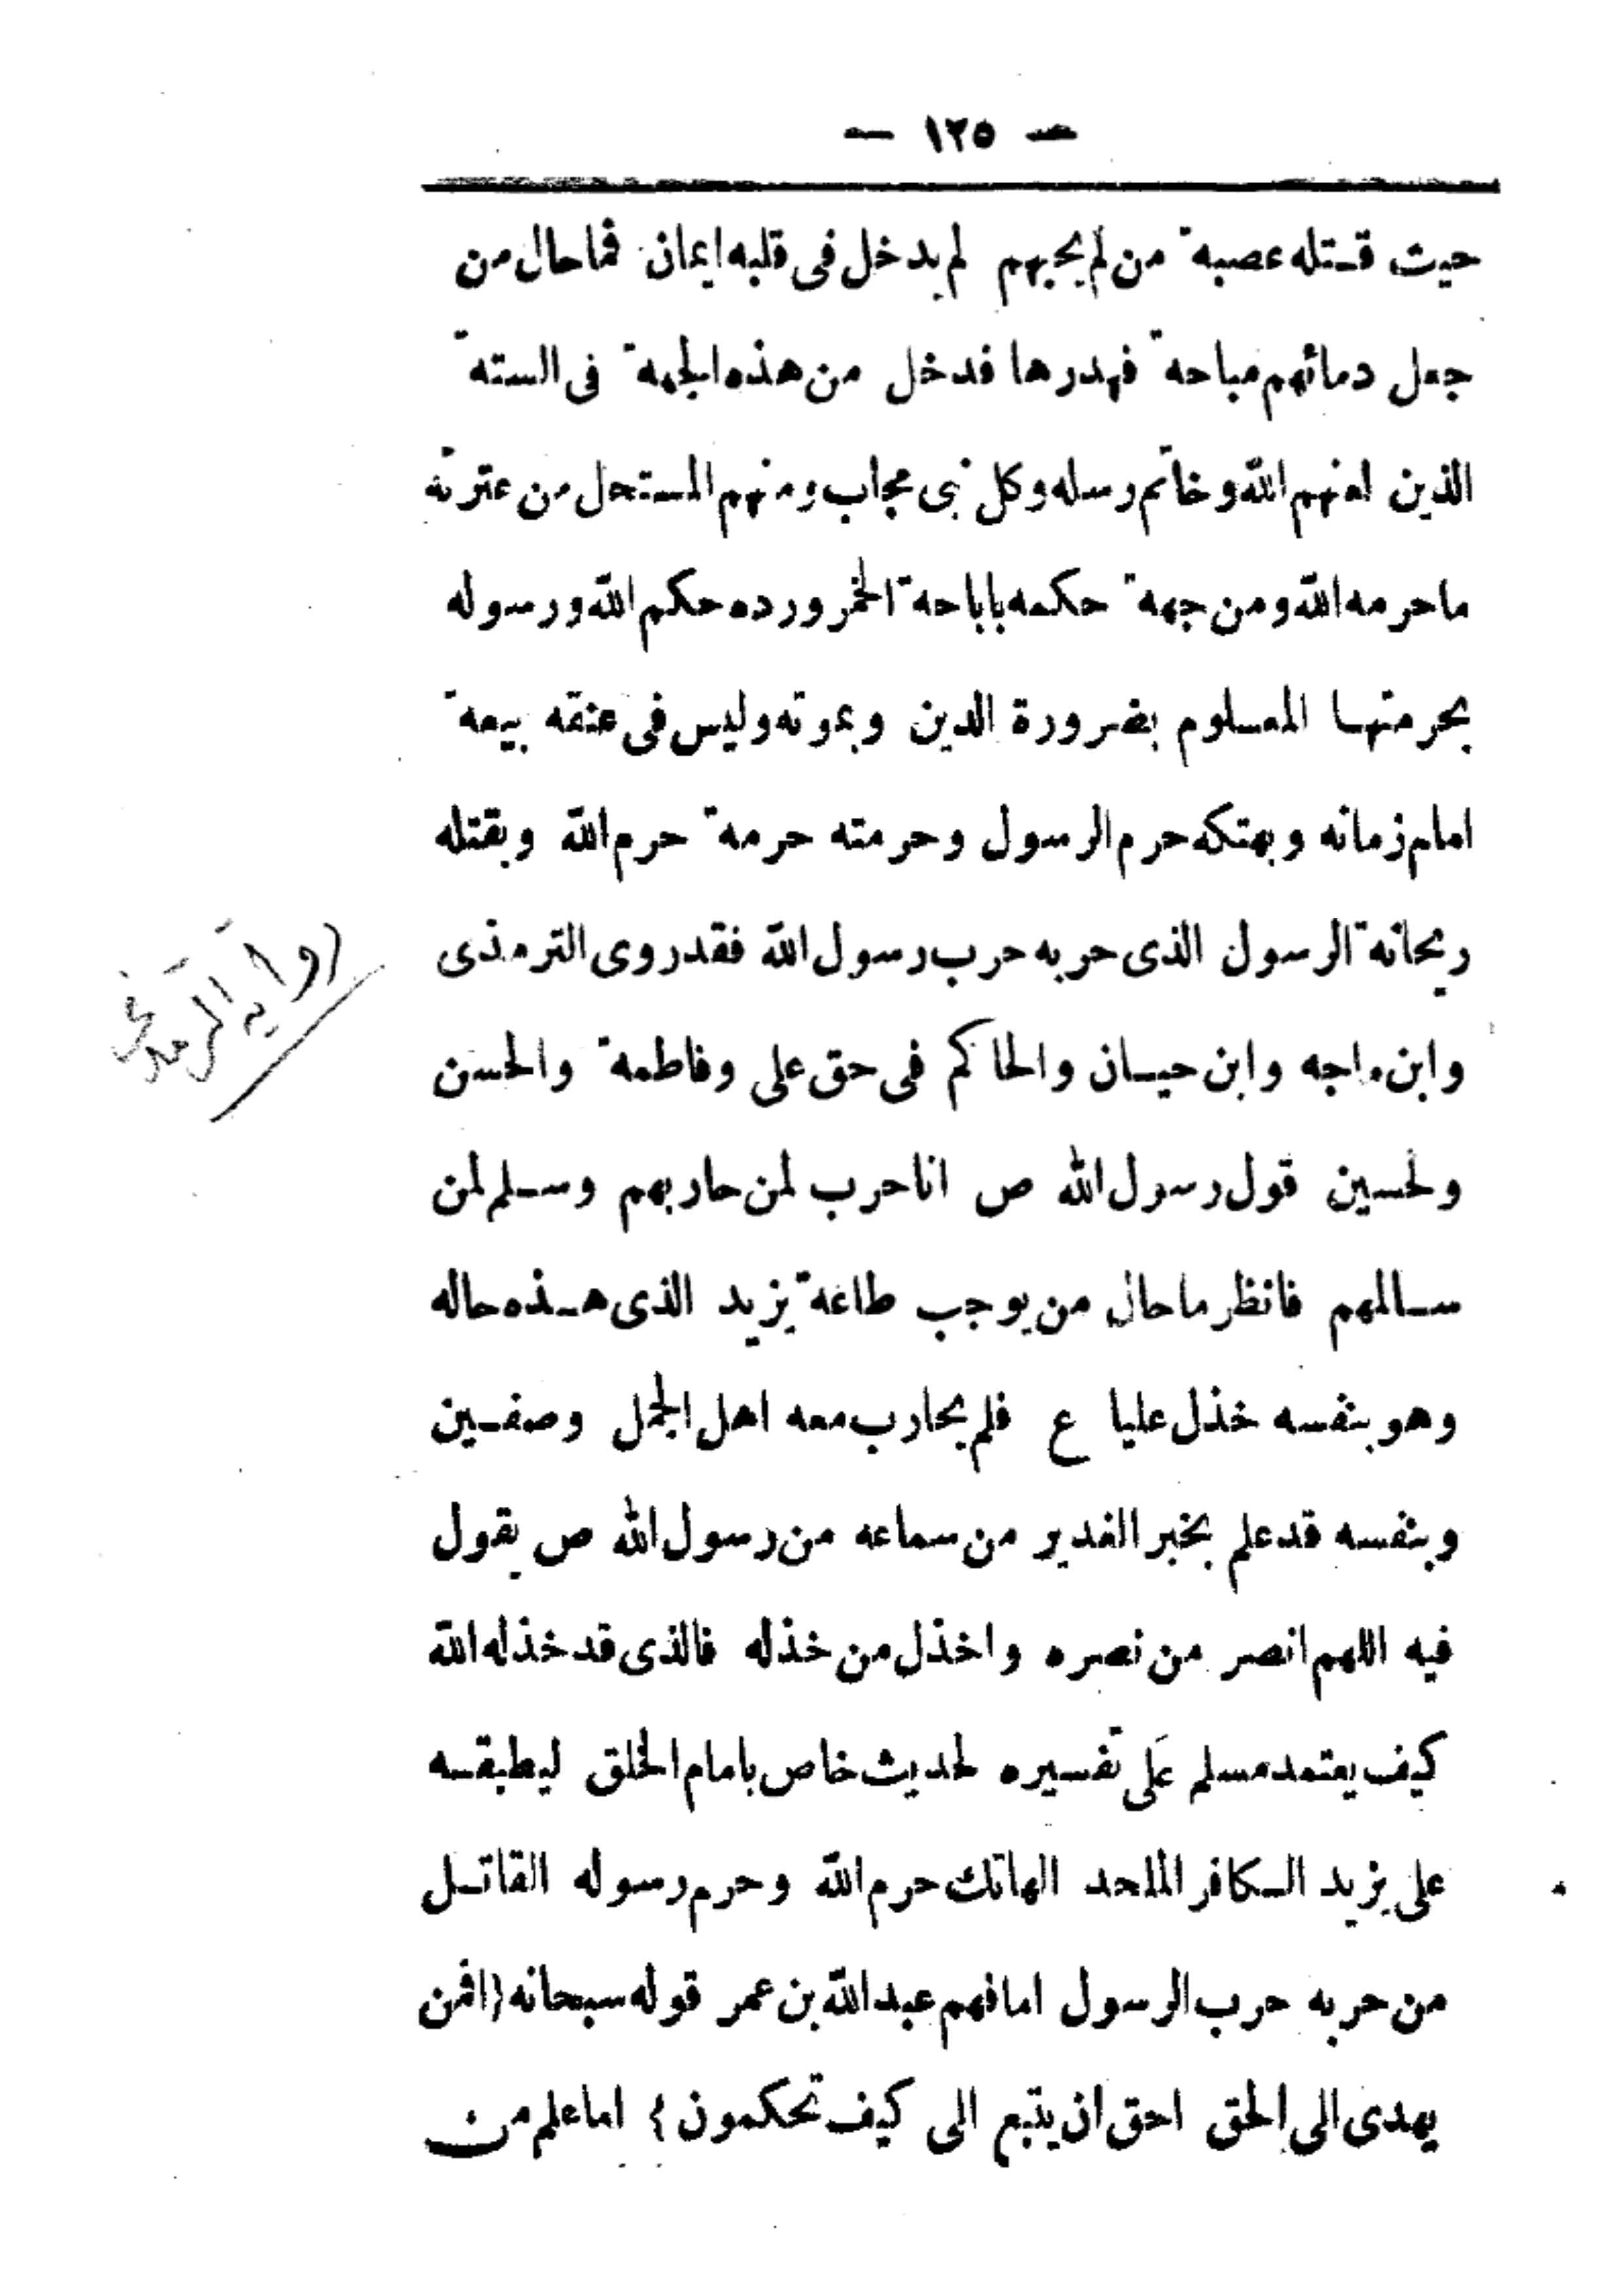 — ١٢٥ —
حيث قتله عصبة من لم يحبهم لم يدخل فى قلبه ايمان فما حال من
جعل دمائهم مباحة فهدرها فدخل من هذه الجهة فى الستة
الذين لعنهم الله وخاتم رسله وكل نبى مجاب ومنهم المستحل من عترته
ما حرمه الله ومن جهة حكمه باباحة الخمر ورده حكم الله ورسوله
بحرمتها المعلوم بضرورة الدين وبموته وليس فى عنقه بيعة
امام زمانه وبهتكه حرم الرسول وحرمته حرمة حرم الله وبقتله
ريحانة الرسول الذى حربه حرب رسول الله فقد روى الترمذى
رواية الترمذي
وابن ماجه وابن حبان والحاكم فى حق على وفاطمة والحسن
ولحسين قول رسول الله ص انا حرب لمن حاربهم وسلم لمن
سالمهم فانظر ما حال من يوجب طاعة يزيد الذى هذه حاله
وهو بنفسه خذل عليا ع فلم يحارب معه اهل الجمل وصفين
وبنفسه قد علم بخبر الغدير من سماعه من رسول الله ص يقول
فيه اللهم انصر من نصره واخذل من خذله فالذى قد خذله الله
كيف يعتمد مسلم على تفسيره لحديث خاص بامام الخلق ليطبقه
على يزيد الكافر الملحد الهاتك حرم الله وحرم رسوله القاتل
من حربه حرب الرسول اما فهم عبد الله بن عمر قوله سبحانه (افمن
يهدى الى الحق احق ان يتبع الى كيف تحكمون) اما علم من